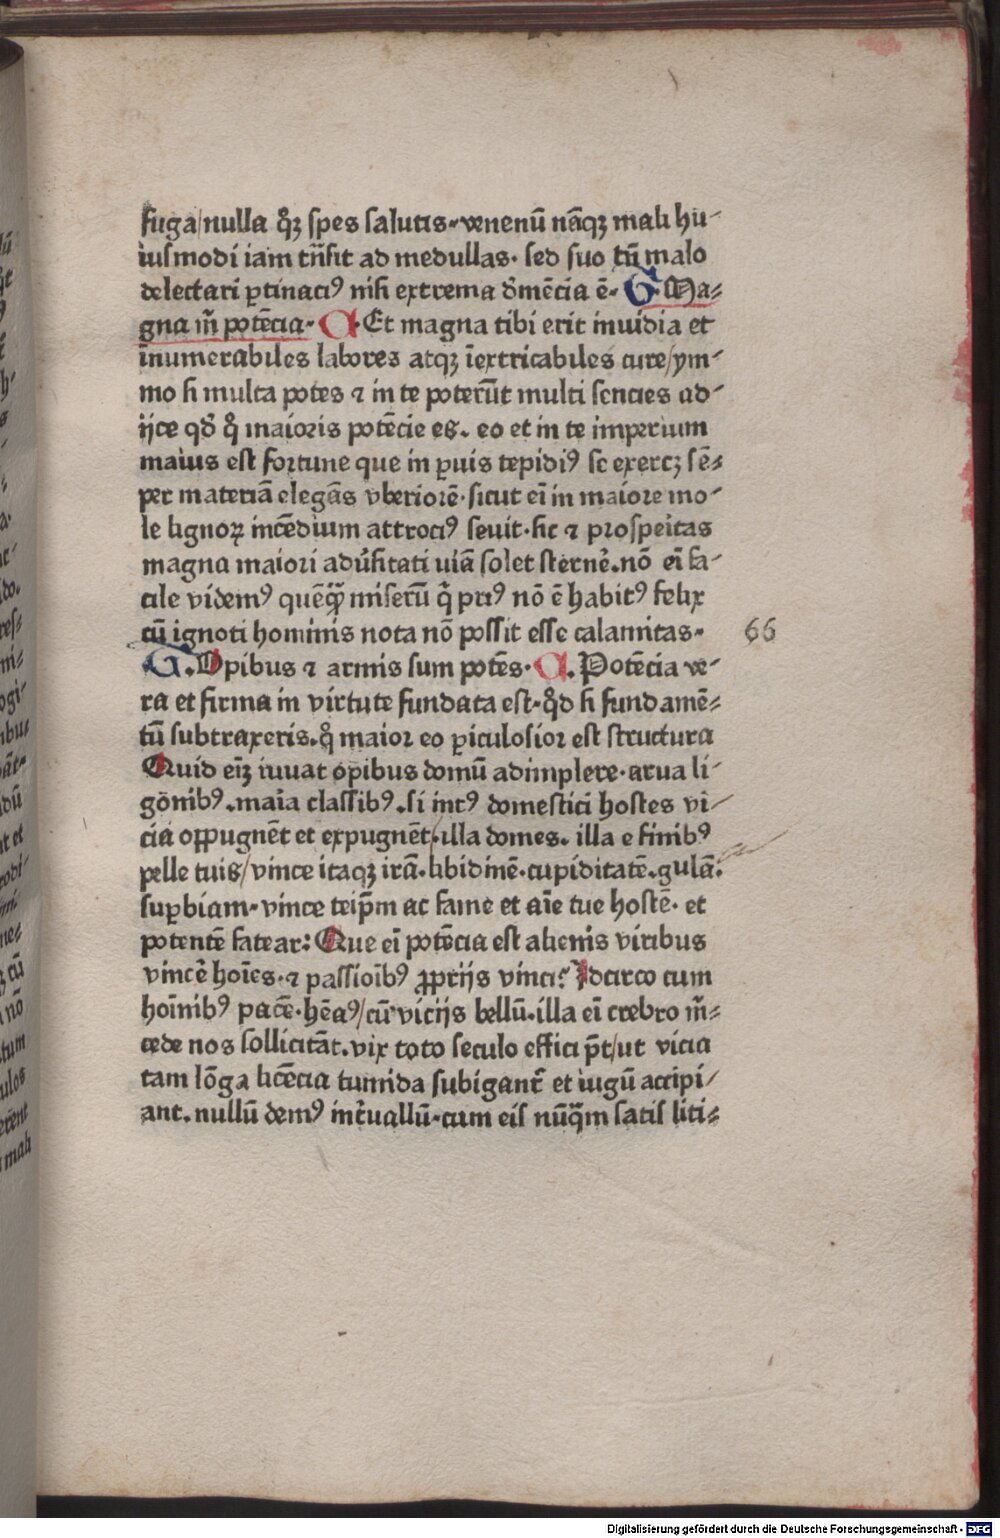 fuga/nulla qꝫ spes salutis·venenū nāqꝫ mali hu⸗
iusmodi iam trāsit ad medullas· sed suo tn̄ malo
delectari ꝑtinaciꝰ nisi extrema dēmēcia ē· G· Ma⸗
gna m̄ potēcia· A·Et magna tibi erit inuidia et
īnumerabiles labores atqꝫ īextricabiles cure/ym⸗
mo si multa potes ⁊ in te poterūt multi sencies ad⸗
ijce qd̄ q̊ maioris potēcie es· eo et in te imperium
maius est fortune que in ꝑuis tepidiꝰ se exercꝫ sē⸗
per materiā elegās vberiorē·sicut ei̅ in maiore mo⸗
le lignoꝝ incēdium attrociꝰ seuit·sic ⁊ prosperitas
magna maiori aduƀsitati uiā solet sternē·nō ei̅ fa⸗
cile videmꝰ quēqꝫ miserū q̇ priꝰ nō ē habitꝰ felix
cū ignoti hominis nota nō possit esse calamitas·
66
G·Opibus ⁊ armis sum potēs· A·Potēcia ve⸗
ra et firma in virtute fundata est·qd̄ si fundamē⸗
tū subtraxeris·q̊ maior eo ꝑiculosior est structura
Quid ei̅ꝫ iuuat opibus domū adimplere·arua li⸗
gōnibꝰ·maia classibꝰ·si intꝰ domestici hostes vi⸗
cia oppugnēt et expugnēt·illa domes· illa e finibꝰ
pelle tuis/vince itaqꝫ irā·libidinē·cupiditatē·gulā·
suꝑbiam·vince teip̄m ac fame et aīe tue hostē· et
potentē fatear: Que ei̅ potēcia est alienis viribus
vincē hoīes·⁊ passioībꝰ ꝓprijs vinci? Idcirco cum
hoīnibꝰ pacē·hēaꝰ/cū vicijs bellū·illa ei̅ crebro m̄⸗
cede nos sollicitāt·vix toto seculo effici p̄t/ut vicia
tam lōga licēcia tumida subigant̄ et iugū accipi⸗
ant·nullū demꝰ int̄uallū·cum eis nūq̄m satis liti⸗
Digitalisierung gefördert durch die Deutsche Forschungsgemeinschaft - DFG